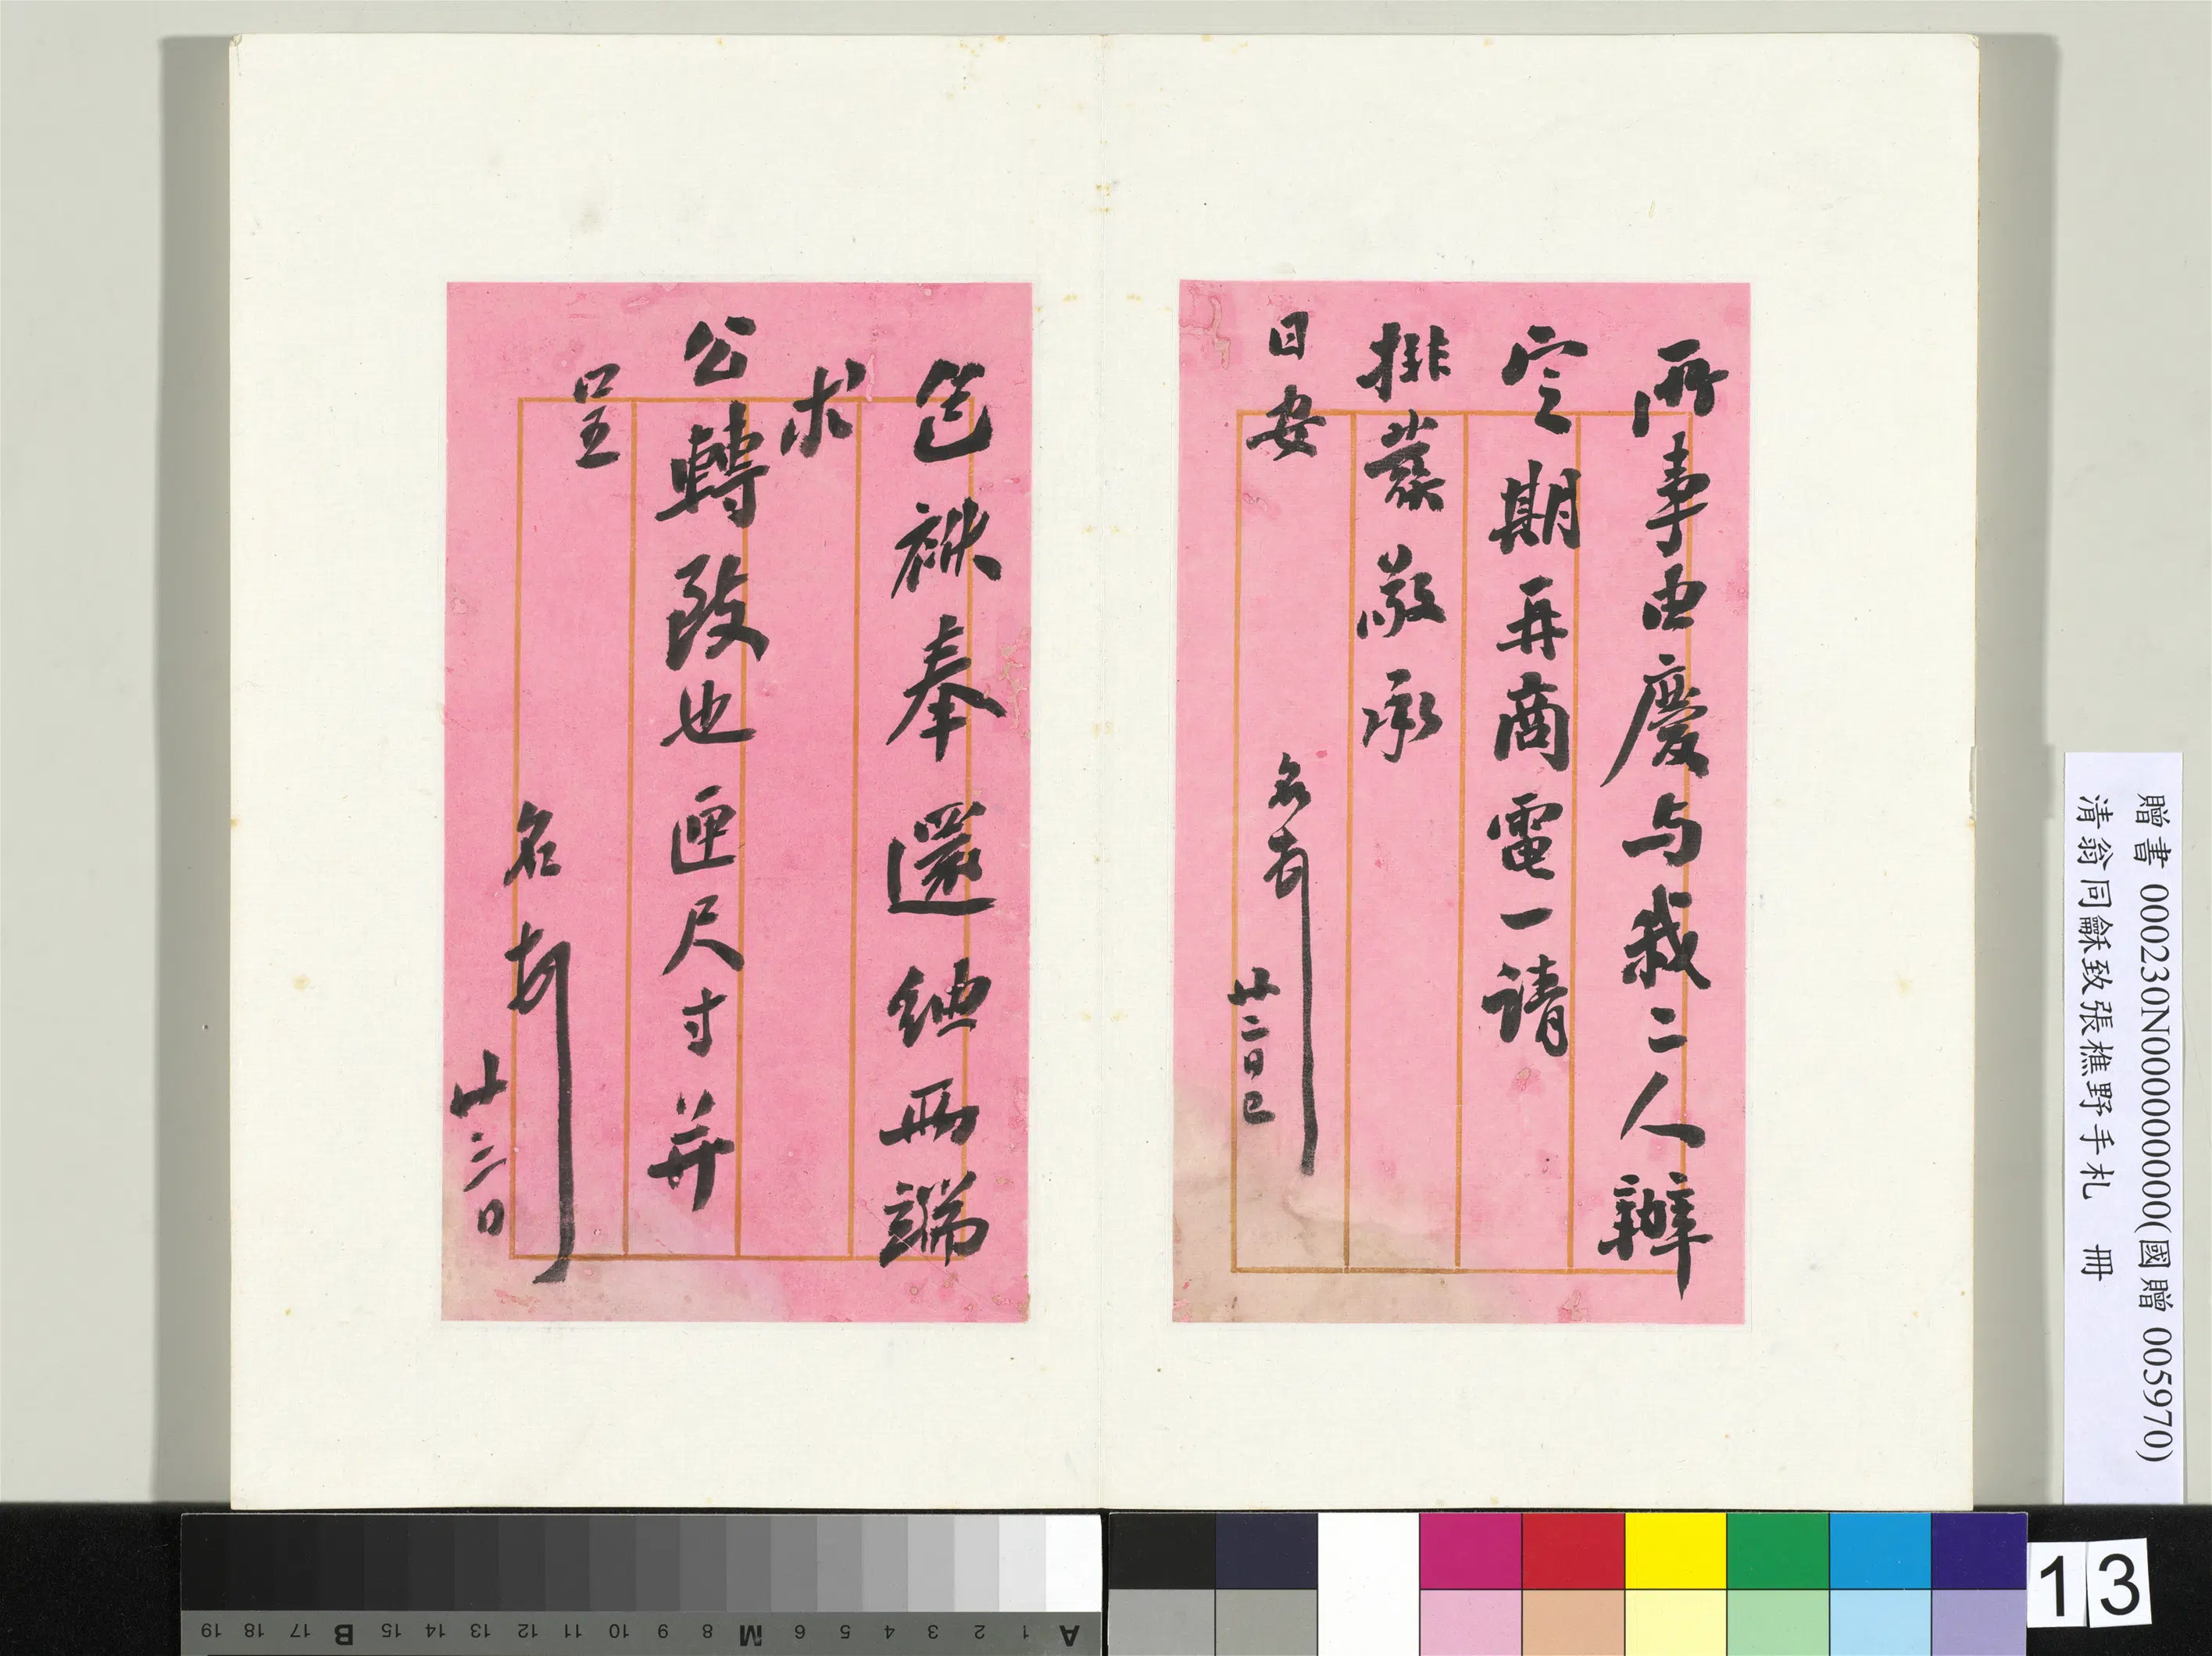 所事由慶与我二人辦
定期再商電一請
排 敬承
日安
名
廿二日
包袱奉還紬兩端
求
公轉致也匣尺寸并
呈
名
贈書 000230N000000000(國贈 005970)
清翁同龢致張樵野手札 冊
A 1 2 3 4 5 6 M 8 9 10 11 12 13 14 15 B 17 18 19
13